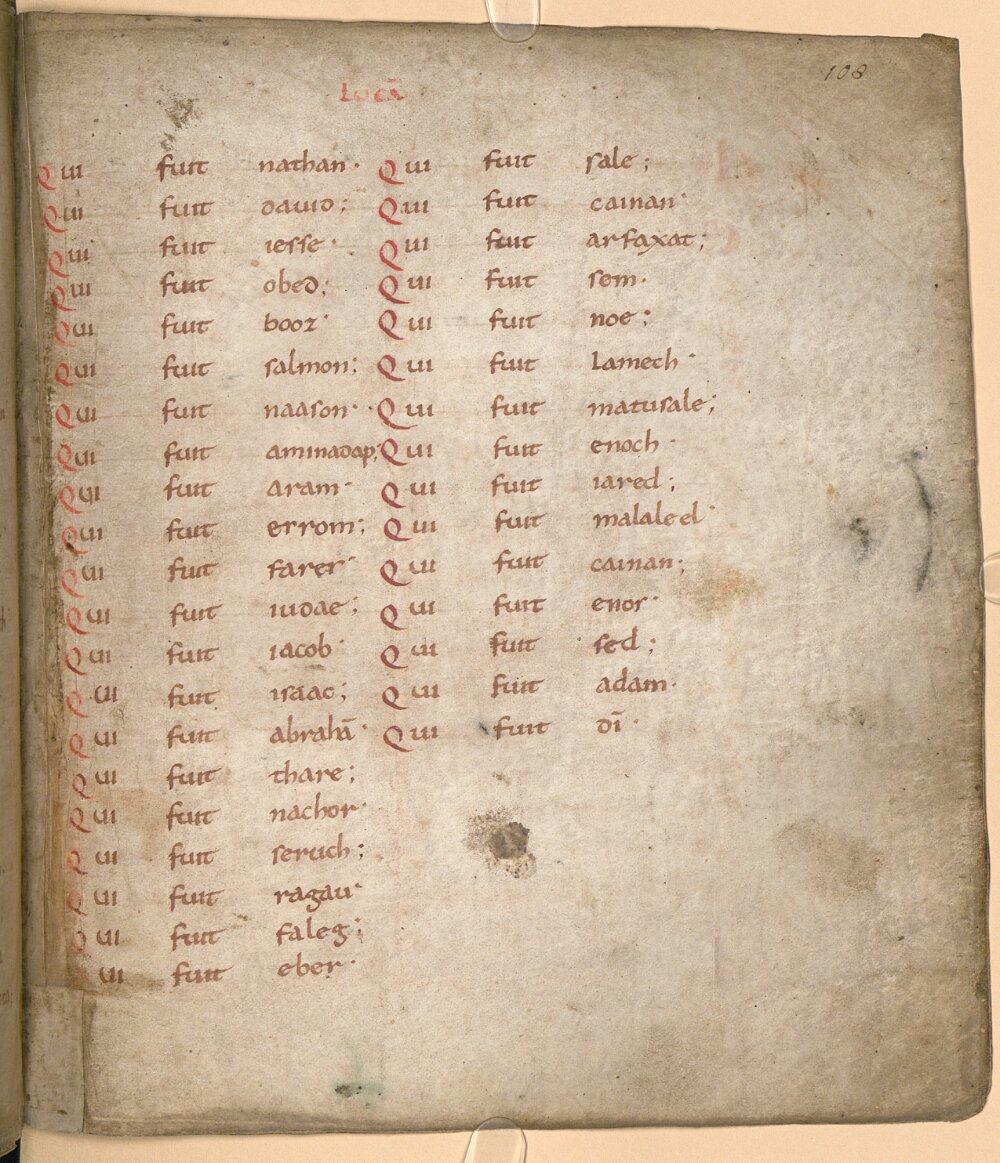 108
Lucā
Qui fuit nathan·
Qui fuit dauid;
Qui fuit iesse·
Qui fuit obed;
Qui fuit booz·
Qui fuit salmon;
Qui fuit naason·
Qui fuit aminadap;
Qui fuit aram·
Qui fuit esrom;
Qui fuit fares·
Qui fuit iudae;
Qui fuit iacob·
Qui fuit isaac;
Qui fuit abrahā·
Qui fuit thare;
Qui fuit nachor·
Qui fuit seruch;
Qui fuit ragau·
Qui fuit faleg;
Qui fuit eber·
Qui fuit sale;
Qui fuit cainan·
Qui fuit arfaxat;
Qui fuit sem·
Qui fuit noe;
Qui fuit Lamech·
Qui fuit matusale;
Qui fuit enoch·
Qui fuit iared;
Qui fuit malaleel·
Qui fuit cainan;
Qui fuit enos·
Qui fuit sed;
Qui fuit adam·
Qui fuit dī·